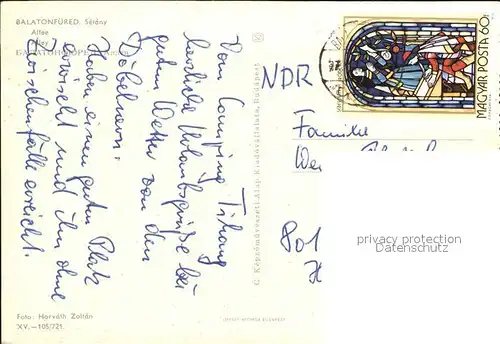 BALATONFÜRED. Sétány
Allée
Vom Camping Tihany
herzliche Urlaubsgrüße bei
gutem Wetter von den
Döbelnern.
Haben einen guten Platz
erwischt und ihn ohne
Zwischenfälle erreicht.
Foto: Horváth Zoltán
XV.—105/721.
© Képzőművészeti Alap Kiadóvállalata, Budapest
MAGYAR POSTA 60f
NDR
Familie
We
801
H
privacy protection
variosammler